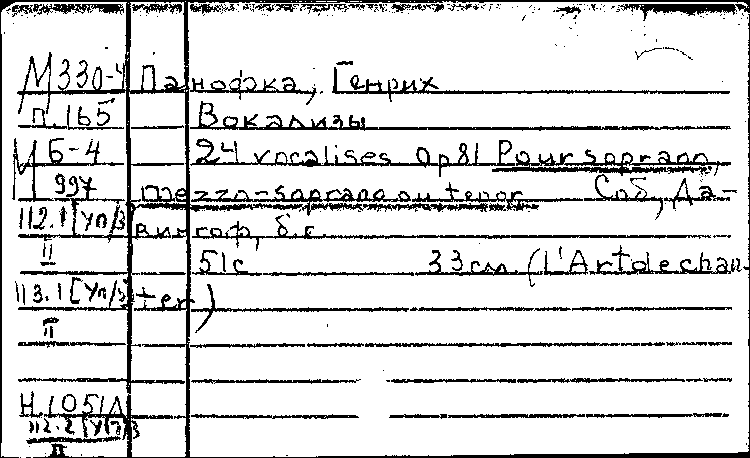 М330-4 Панофка, Генрих
П.165 Вокализы
М Б-4 24 vocalises Op 81 Pour soprano,
997 mezzo-soprano ou tenor Спб, Да-
112.1[Уп/3] вингоф, б.г.
II 51с 33см. (L'Art de chan-
113.1[Уп/3] ter)
II
Н.1051А
112.2[УП]3
II